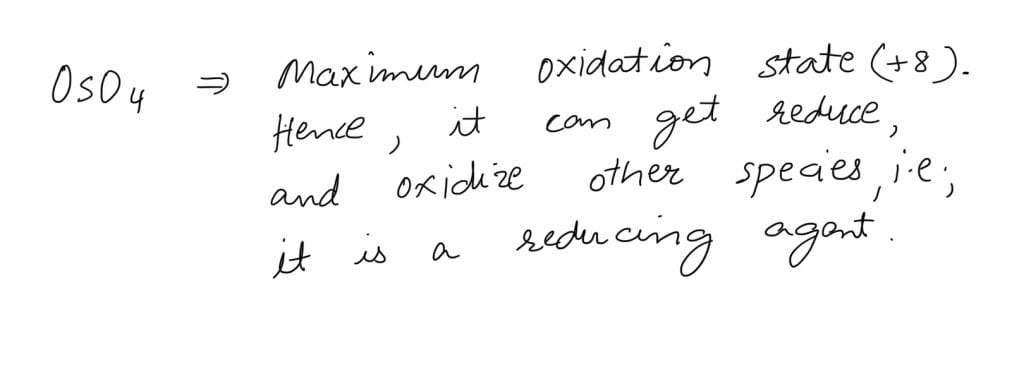 OsO4 ⇒ Maximum oxidation state (+8).
Hence, it can get reduce,
and oxidize other species, i.e;
it is a reducing agent.